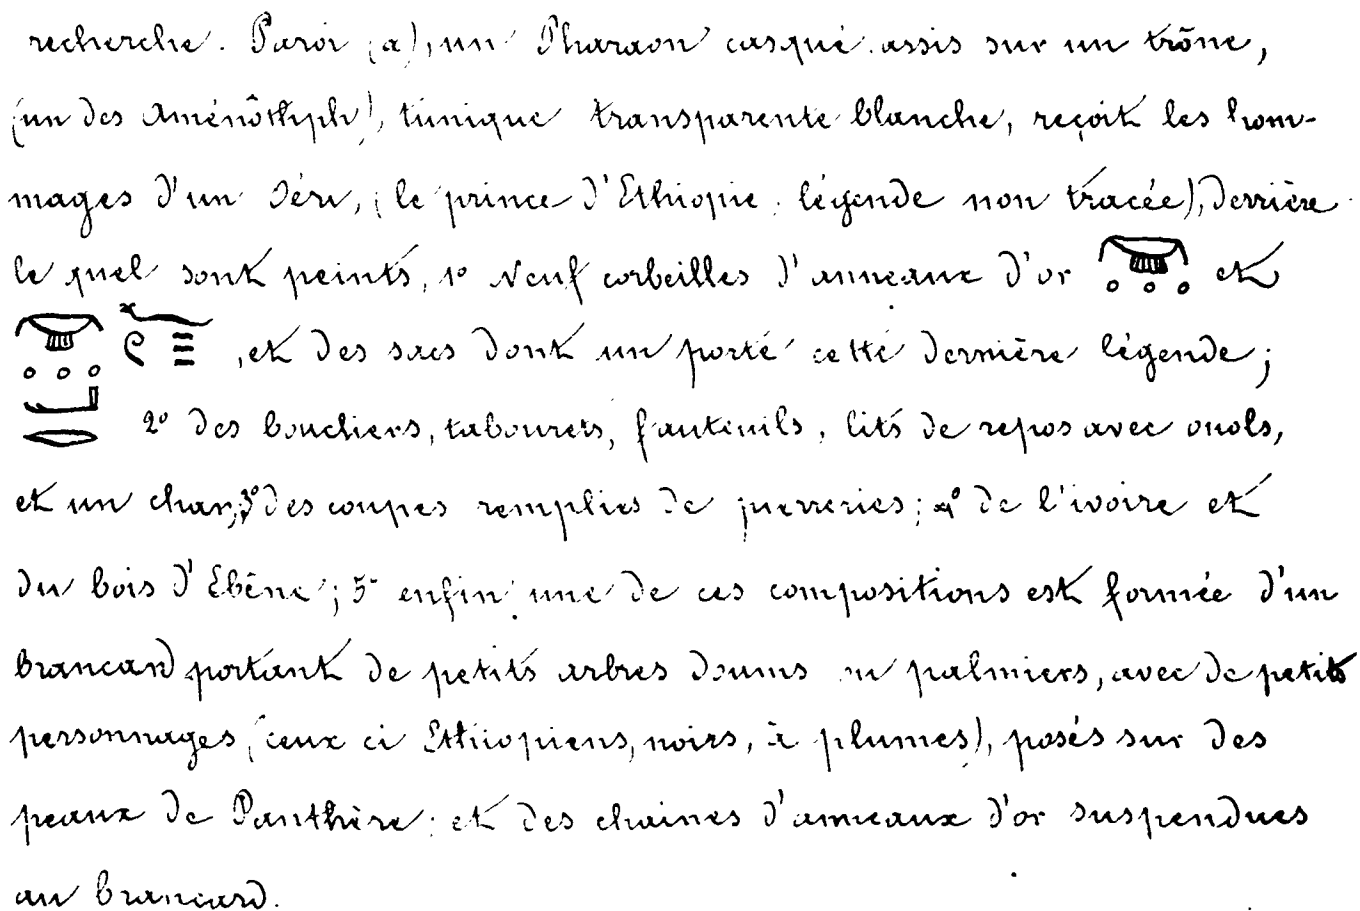 recherche. Paroi (a), un Pharaon casqué assis sur un trône,
(un des Aménôthph), tunique transparente blanche, reçoit les hom-
mages d'un Séri, (le prince d'Ethiopie, légende non tracée), derrière
le quel sont peints, 1º Neuf corbeilles d'anneaux d'or et
, et des sacs dont un porte cette dernière légende;
2º des boucliers, tabourets, fauteuils, lits de repos avec ouols,
et un char; 3º des coupes remplies de pierreries; 4º de l'ivoire et
du bois d'Ebène; 5º enfin une de ces compositions est formée d'un
brancard portant de petits arbres doums ou palmiers, avec de petits
personnages, (ceux ci Ethiopiens, noirs, à plumes), posés sur des
peaux de Panthère; et des chaines d'anneaux d'or suspendues
au brancard.